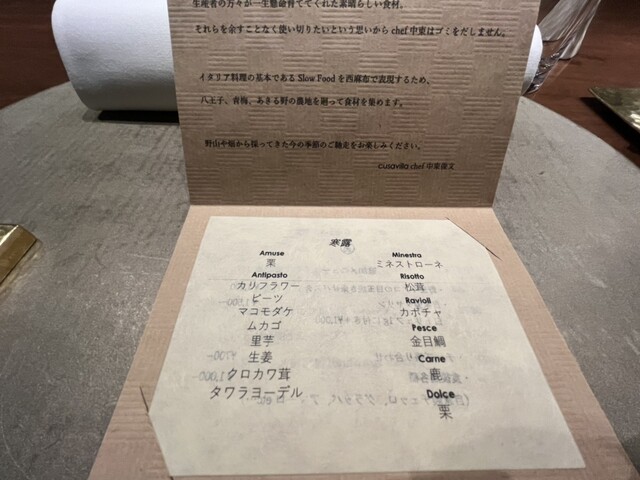 生産者の方々が一生懸命育ててくれた素晴らしい食材。
それらを余すことなく使い切りたいという思いから chef 中東はゴミをだしません。
イタリア料理の基本である Slow Food を西麻布で表現するため、
八王子、青梅、あきる野の農地を廻って食材を集めます。
野山や畑から採ってきた今の季節のご馳走をお楽しみください。
cusavilla chef 中東俊文
寒露
Amuse
栗
Antipasto
カリフラワー
ビーツ
マコモダケ
ムカゴ
里芋
生姜
クロカワ茸
タワラヨーデル
Minestra
ミネストローネ
Risotto
松茸
Ravioli
カボチャ
Pesce
金目鯛
Carne
鹿
Dolce
栗